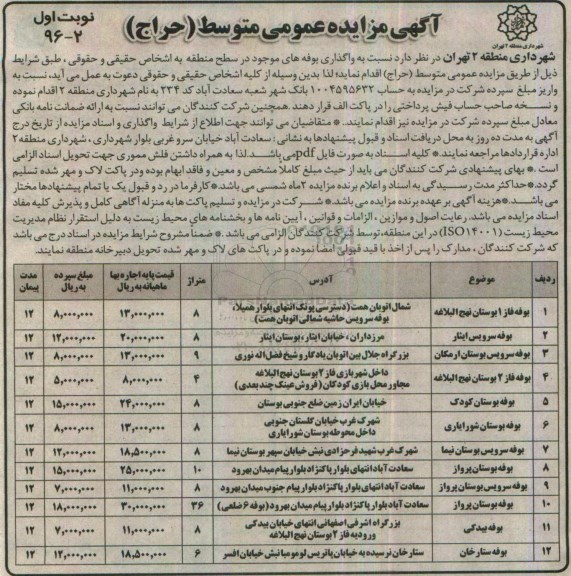 آگهی مزایده عمومی متوسط (حراج)
نوبت اول
۹۶-۲
شهرداری منطقه ۲ تهران
شهرداری منطقه ۲ تهران در نظر دارد نسبت به واگذاری بوفه های موجود در سطح منطقه به اشخاص حقیقی و حقوقی ، طبق شرایط
ذیل از طریق مزایده عمومی متوسط (حراج) اقدام نماید؛ لذا بدین وسیله از کلیه اشخاص حقیقی و حقوقی دعوت به عمل می آید، نسبت به
واریز مبلغ سپرده شرکت در مزایده به حساب ۱۰۰۴۵۹۵۶۳۲ بانک شهر شعبه سعادت آباد کد ۲۲۴ به نام شهرداری منطقه ۲ اقدام نموده
و نسخه صاحب حساب فیش پرداختی را در پاکت الف قرار دهند. همچنین شرکت کنندگان می توانند نسبت به ارائه ضمانت نامه بانکی
معادل مبلغ سپرده شرکت در مزایده نیز اقدام نمایند. * متقاضیان می توانند جهت اطلاع از شرایط واگذاری و اسناد مزایده از تاریخ درج
آگهی به مدت ده روز به محل دریافت اسناد و قبول پیشنهادها به نشانی : سعادت آباد خیابان سرو غربی بلوار شهرداری ، شهرداری منطقه ۲
اداره قراردادها مراجعه نمایند. * کلیه اسناد به صورت فایل pdf می باشد. لذا به همراه داشتن فلش مموری جهت تحویل اسناد الزامی
است . * بهای پیشنهادی شرکت کنندگان می باید از حیث مبلغ کاملا مشخص و معین و فاقد ابهام بوده و در پاکت لاک و مهر شده تسلیم
گردد. * حداکثر مدت رسیدگی به اسناد و اعلام برنده مزایده ۲ ماه شمسی می باشد * کارفرما در رد و قبول یک یا تمام پیشنهادها مختار
می باشد. * هزینه آگهی بر عهده برنده مزایده می باشد. * شرکت در مزایده و تسلیم پاکت ها به منزله آگاهی کامل و پذیرش کلیه مفاد
اسناد مزایده می باشد. رعایت اصول و موازین ، الزامات و قوانین ، آیین نامه ها و بخشنامه های محیط زیست به دلیل استقرار نظام مدیریت
محیط زیست (ISO۱۴۰۰۱) در این منطقه، توسط شرکت کنندگان الزامی می باشد . * ضمناً مشروح شرایط مزایده در اسناد درج می باشد
که شرکت کنندگان ، مدارک را پس از اخذ با قید قبولی امضا نموده و در پاکت های لاک و مهر شده تحویل دبیرخانه منطقه نمایند.
ردیف موضوع آدرس متراژ قیمت پایه اجاره بها ماهیانه به ریال مبلغ سپرده به ریال مدت پیمان
۱ بوفه فاز ۱ بوستان نهج البلاغه شمال اتوبان همت (دسترسی پونک انتهای بلوار همیلا، بوفه سرویس حاشیه شمالی اتوبان همت) ۸ ۱۳,۰۰۰,۰۰۰ ۸,۰۰۰,۰۰۰ ۱۲
۲ بوفه سرویس ایثار مرزداران ، خیابان ایثار ، بوستان ایثار ۸ ۲۰,۰۰۰,۰۰۰ ۱۲,۰۰۰,۰۰۰ ۱۲
۳ بوفه سرویس بوستان ارمکان بزرگراه جلال بین اتوبان یادگار و شیخ فضل اله نوری ۹ ۱۳,۰۰۰,۰۰۰ ۸,۰۰۰,۰۰۰ ۱۲
۴ بوفه فاز ۲ بوستان نهج البلاغه داخل شهربازی فاز ۲ بوستان نهج البلاغه مجاور محل بازی کودکان (فروش عینک چند بعدی) ۴ ۸,۰۰۰,۰۰۰ ۵,۰۰۰,۰۰۰ ۱۲
۵ بوفه بوستان کودک خیابان ایران زمین ضلع جنوبی بوستان ۸ ۲۴,۰۰۰,۰۰۰ ۱۵,۰۰۰,۰۰۰ ۱۲
۶ بوفه بوستان شورایاری شهرک غرب خیابان گلستان جنوبی داخل محوطه بوستان شورایاری ۸ ۱۳,۰۰۰,۰۰۰ ۸,۰۰۰,۰۰۰ ۱۲
۷ بوفه سرویس بوستان نیما شهرک غرب شهید فرحزادی نبش خیابان سپهر بوستان نیما ۸ ۱۸,۵۰۰,۰۰۰ ۱۲,۰۰۰,۰۰۰ ۱۲
۸ بوفه بوستان پرواز سعادت آباد انتهای بلوار پاکنژاد بلوار پیام میدان بهرود ۱۰ ۲۵,۰۰۰,۰۰۰ ۱۵,۰۰۰,۰۰۰ ۱۲
۹ بوفه سرویس بوستان پرواز سعادت آباد انتهای بلوار پاکنژاد بلوار پیام جنوب میدان بهرود ۸ ۱۱,۰۰۰,۰۰۰ ۷,۰۰۰,۰۰۰ ۱۲
۱۰ بوفه بوستان پرواز سعادت آباد بلوار پاکنژاد بلوار پیام میدان بهرود (بوفه ۶ ضلعی) ۳۶ ۳۰,۰۰۰,۰۰۰ ۱۸,۰۰۰,۰۰۰ ۱۲
۱۱ بوفه بیدکی بزرگراه اشرفی اصفهانی انتهای خیابان بیدکی ورودیه فاز ۲ بوستان نهج البلاغه ۸ ۱۱,۰۰۰,۰۰۰ ۷,۰۰۰,۰۰۰ ۱۲
۱۲ بوفه ستارخان ستارخان نرسیده به خیابان پاتریس لومومبا نبش خیابان افسر ۶ ۱۸,۵۰۰,۰۰۰ ۱۲,۰۰۰,۰۰۰ ۱۲